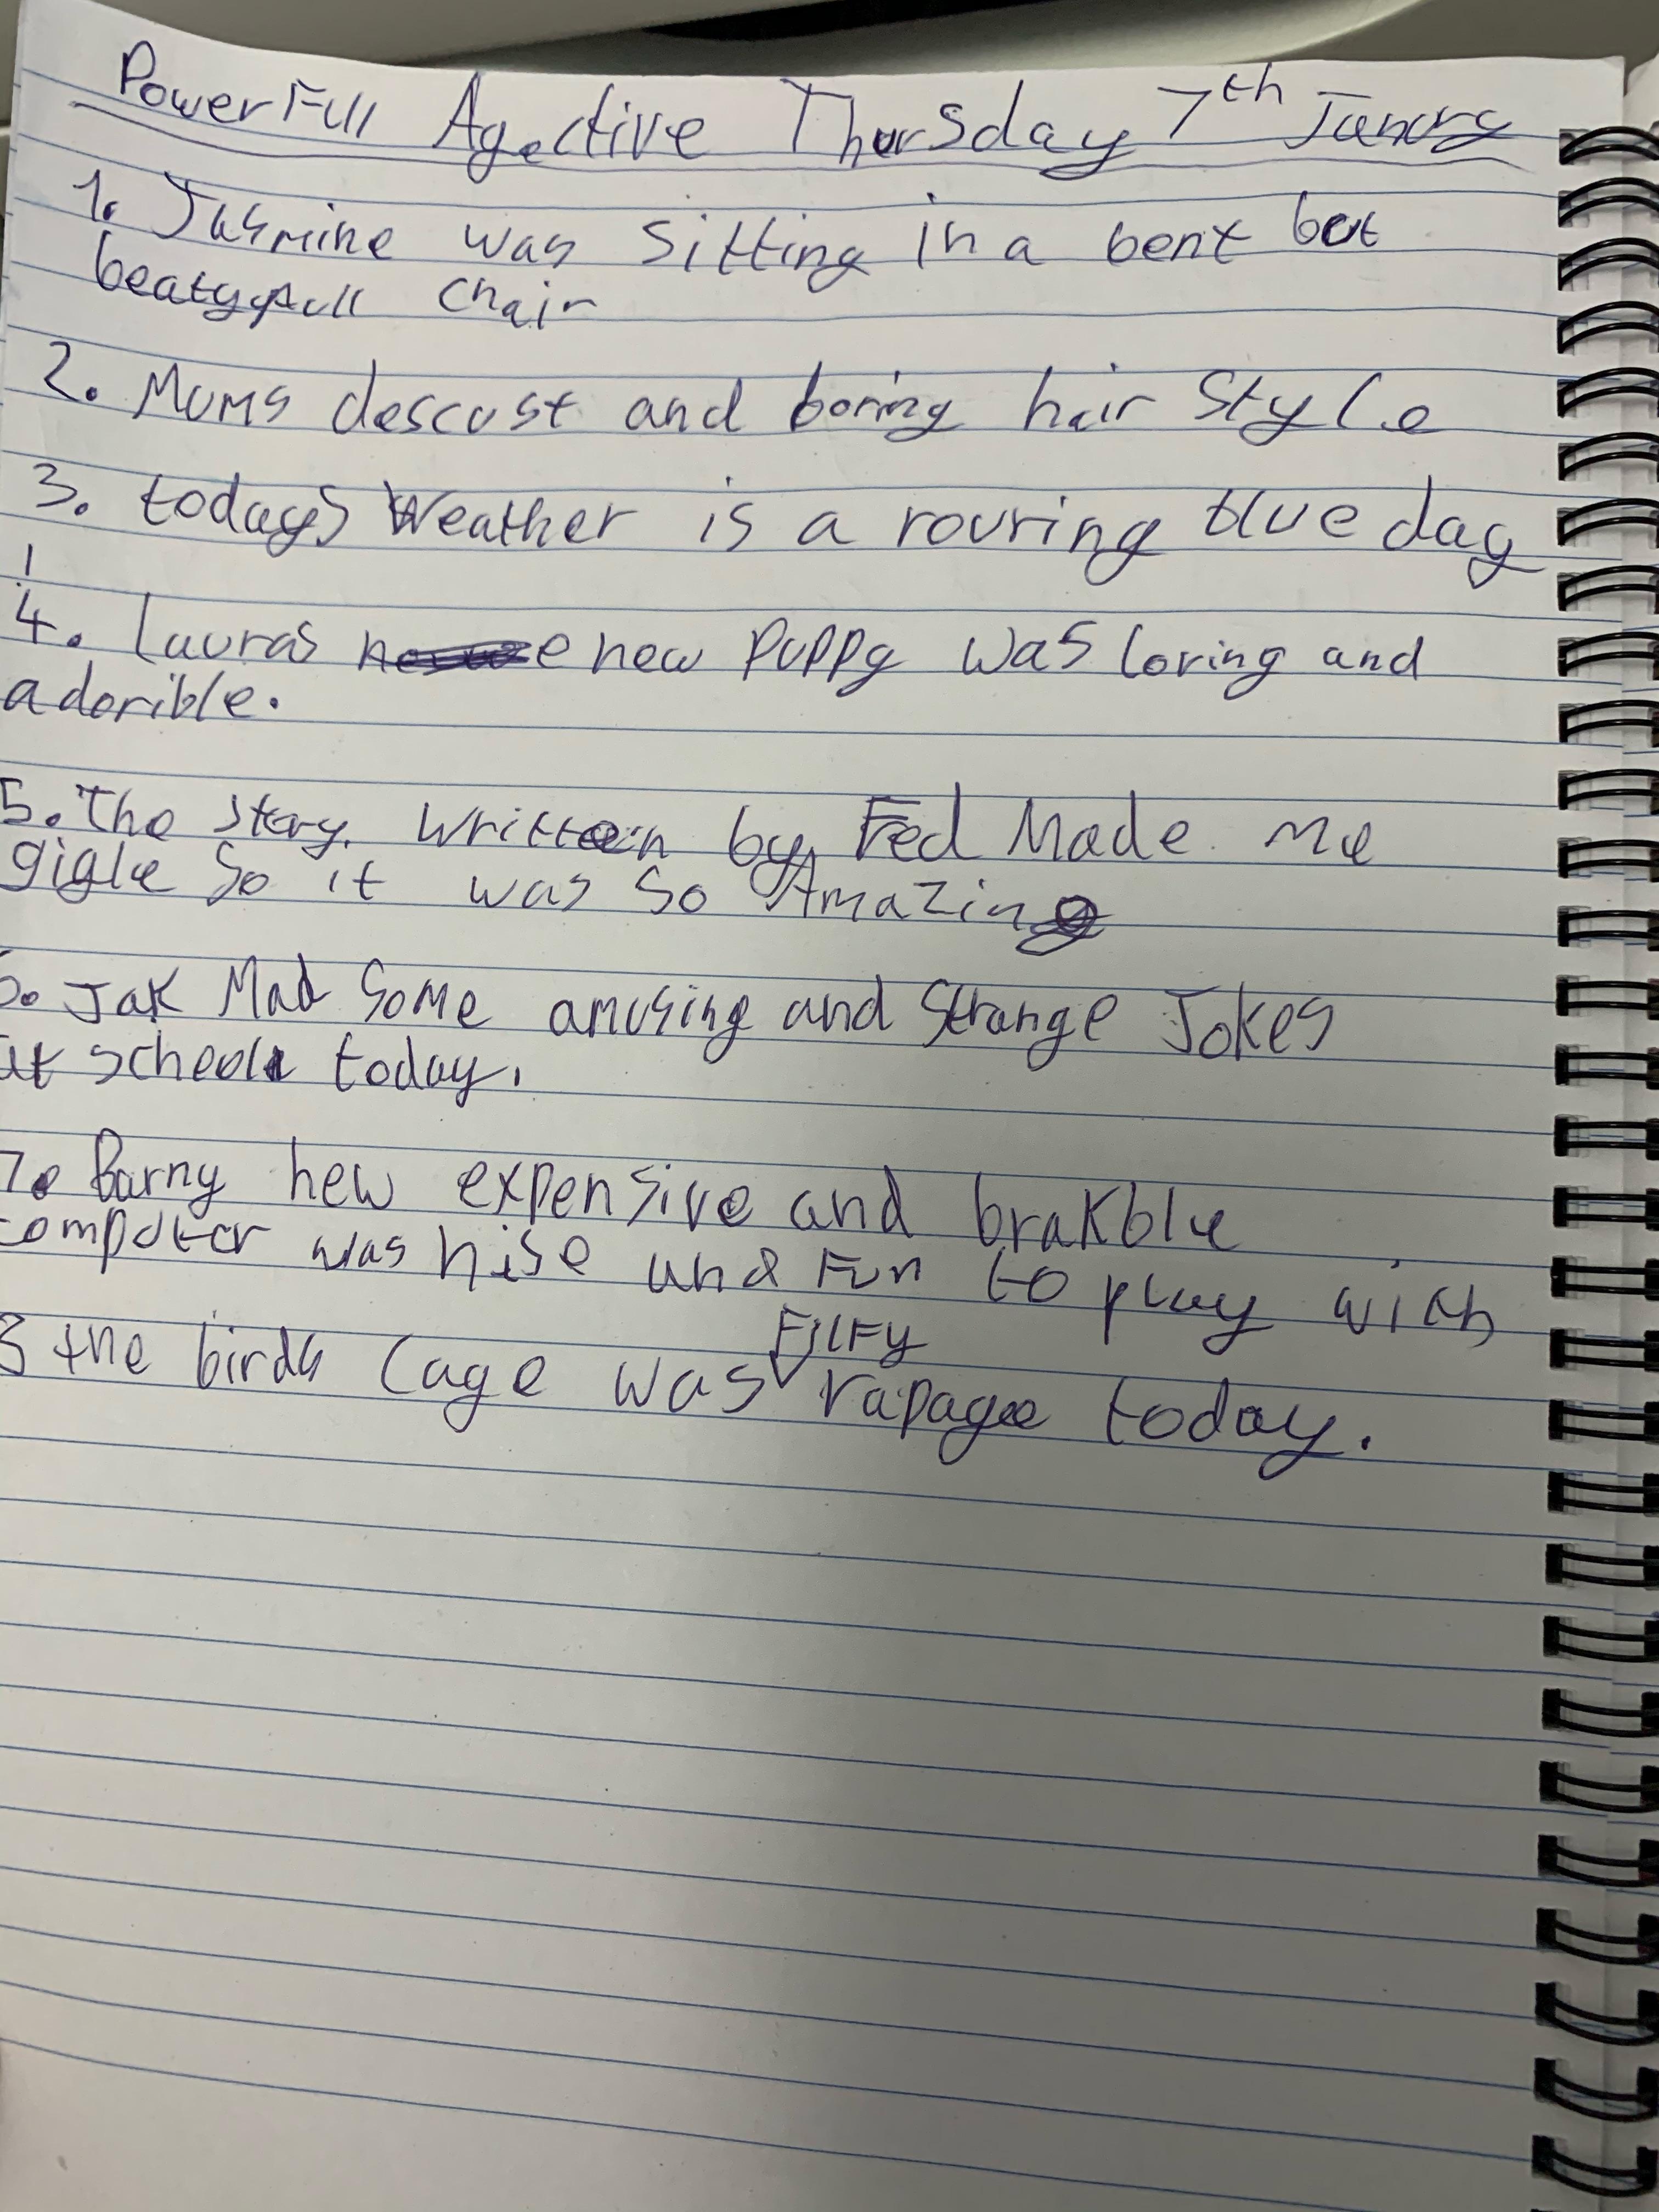 PowerFull Agective Thursday 7th Janury
1. Jasmine was sitting in a bent but
chair
2. Mums descust and boring hair style
3. todays Weather is a rouring blue day
4. Lauras new puppy was loving and
adorible.
5. The story. written by Fed Made me
gigle so it was so Amazing
6. Jak Mad some amusing and strange Jokes
at school today.
7. Barny new expensive and brakble
computer was nise and Fun to play with
the birds cage was Filfy today.